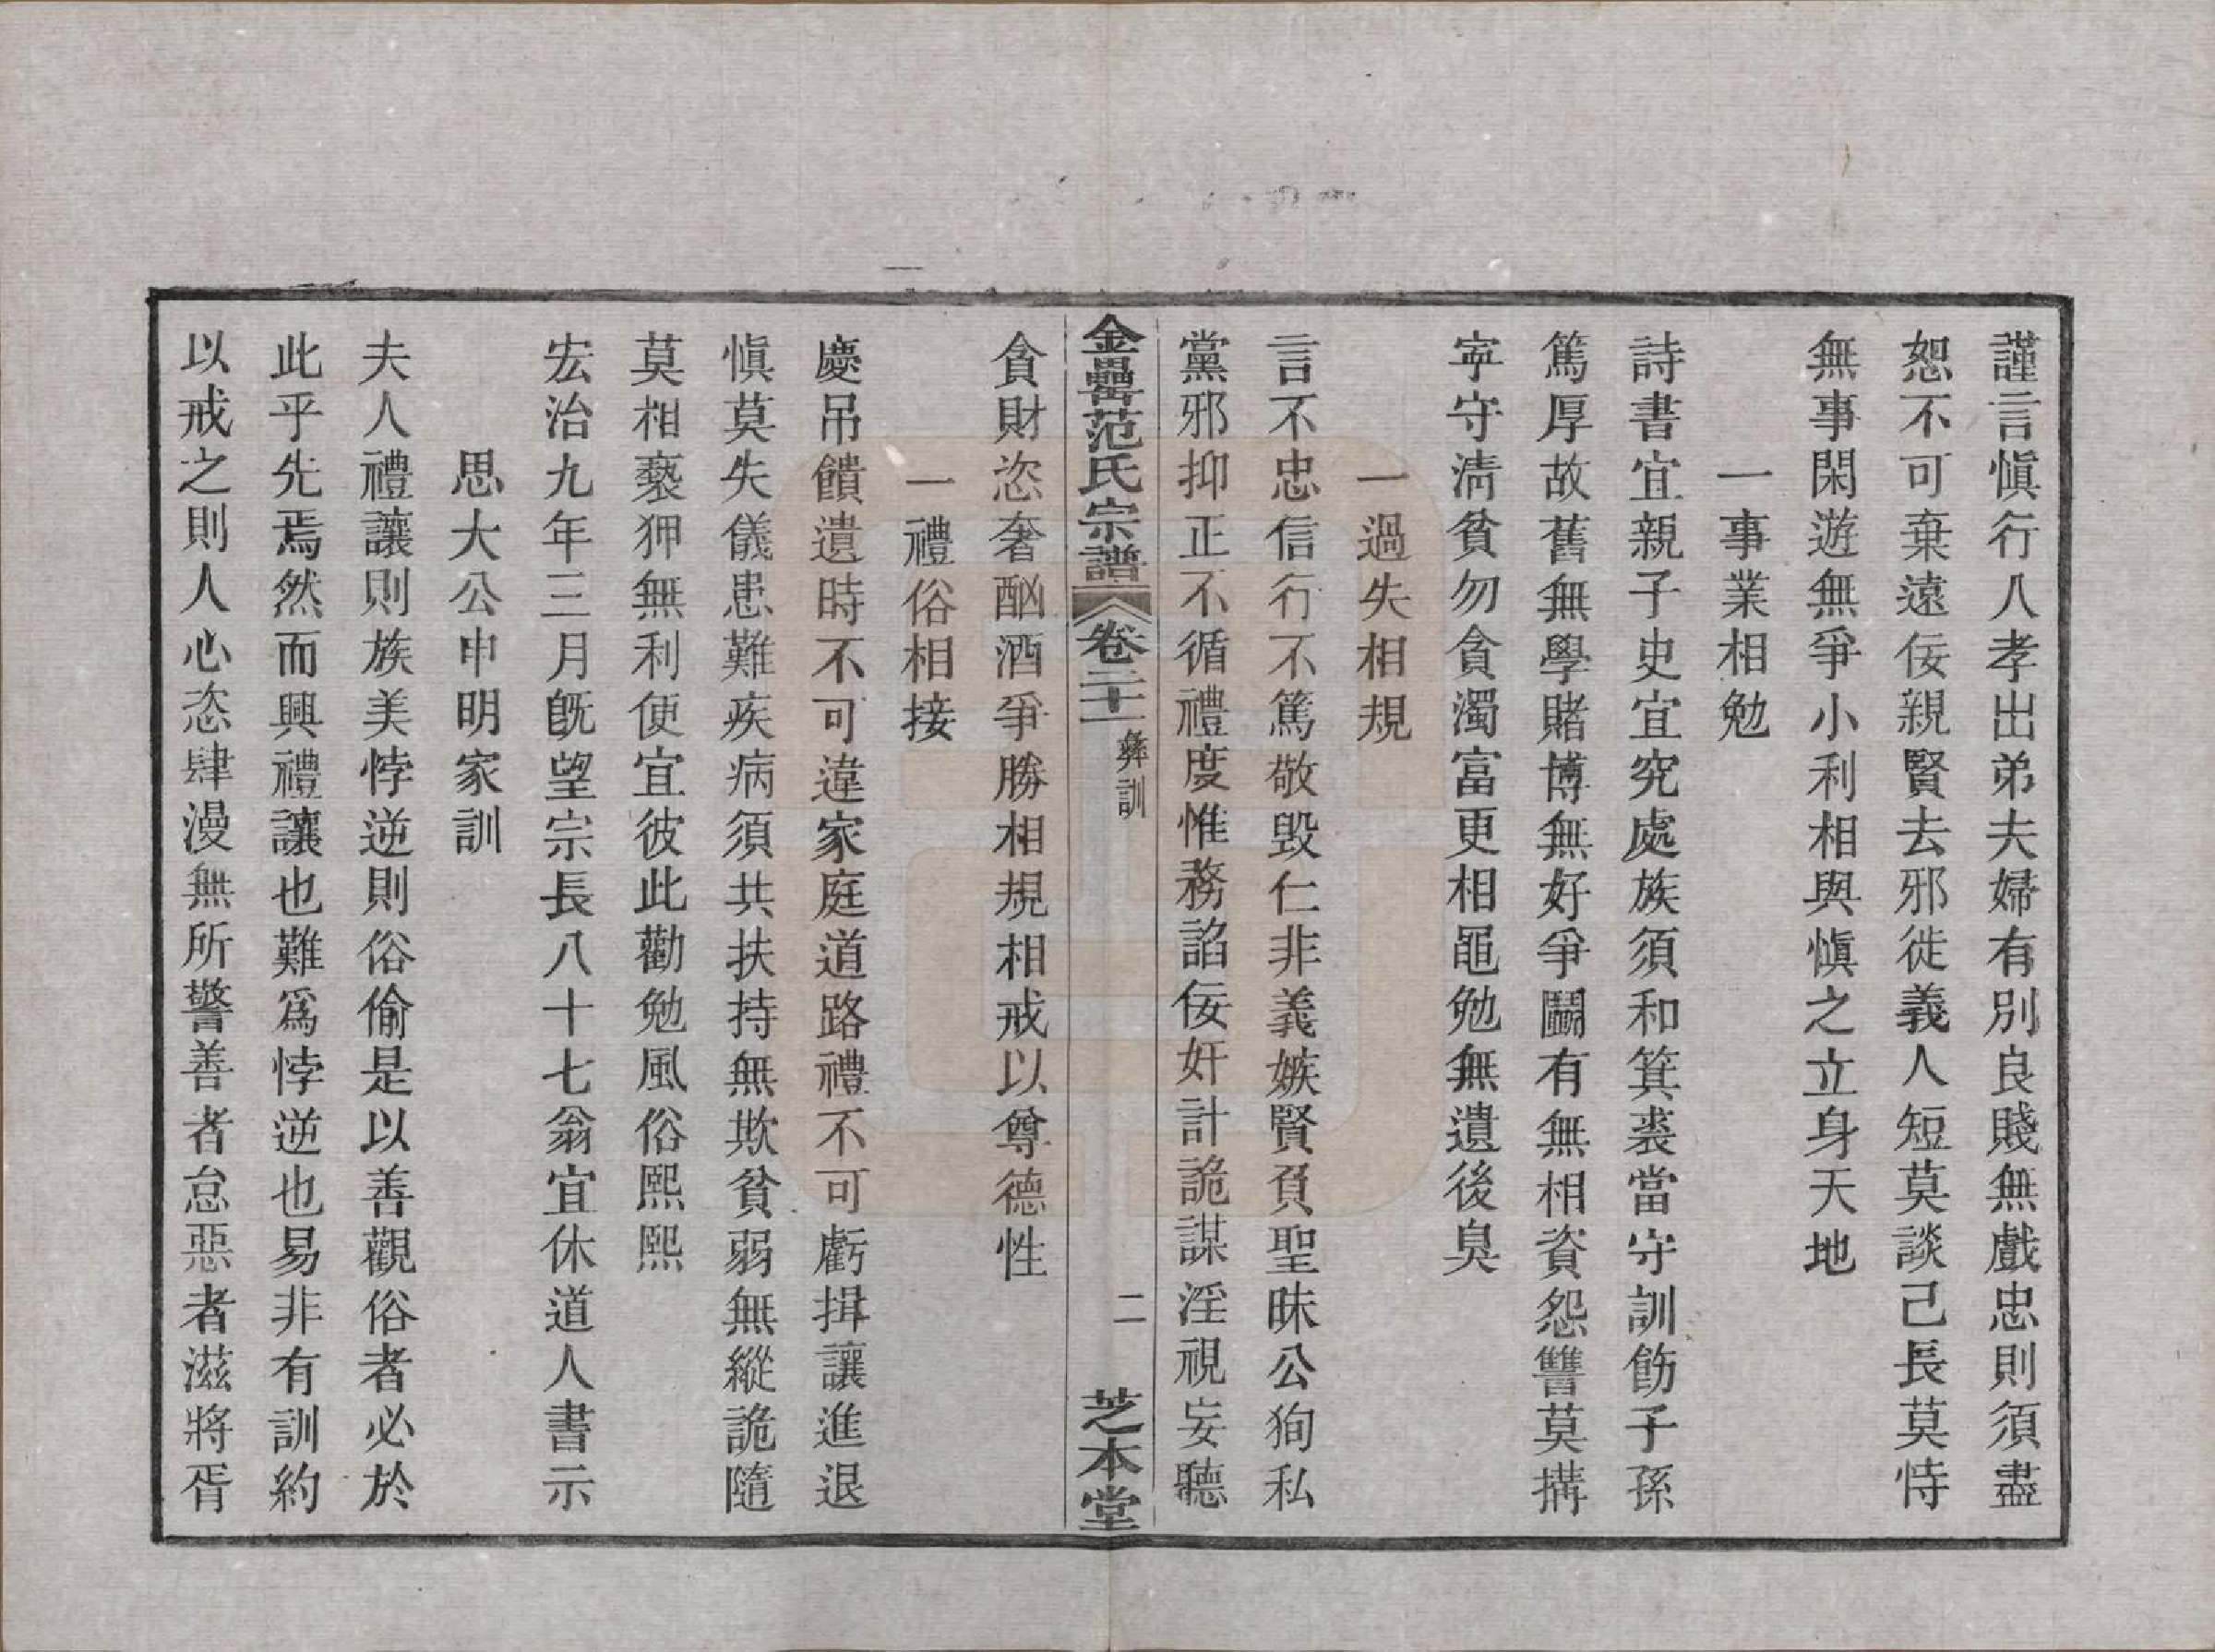 謹言慎行入孝出弟夫婦有別良賤無戲忠則須盡
恕不可棄遠佞親賢去邪徙義人短莫談己長莫恃
無事閑遊無爭小利相與慎之立身天地
一事業相勉
詩書宜親子史宜究處族須和箕裘當守訓飭子孫
篤厚故舊無學賭博無好爭鬪有無相資怨讐莫搆
寧守清貧勿貪濁富更相黽勉無遺後臭
一過失相規
言不忠信行不篤敬毀仁非義嫉賢負聖昧公狥私
黨邪抑正不循禮度惟務諂佞奸計詭謀淫視妄聽
金罍范氏宗譜
卷二十一
彝訓
二
芝本堂
貪財恣奢酗酒爭勝相規相戒以尊德性
一禮俗相接
慶吊饋遺時不可違家庭道路禮不可虧揖讓進退
慎莫失儀患難疾病須共扶持無欺貧弱無縱詭隨
莫相褻狎無利便宜彼此勸勉風俗熙熙
宏治九年三月旣望宗長八十七翁宜休道人書示
思大公申明家訓
夫人禮讓則族美悖逆則俗偷是以善觀俗者必於
此乎先焉然而興禮讓也難爲悖逆也易非有訓約
以戒之則人心恣肆漫無所警善者怠惡者滋將胥